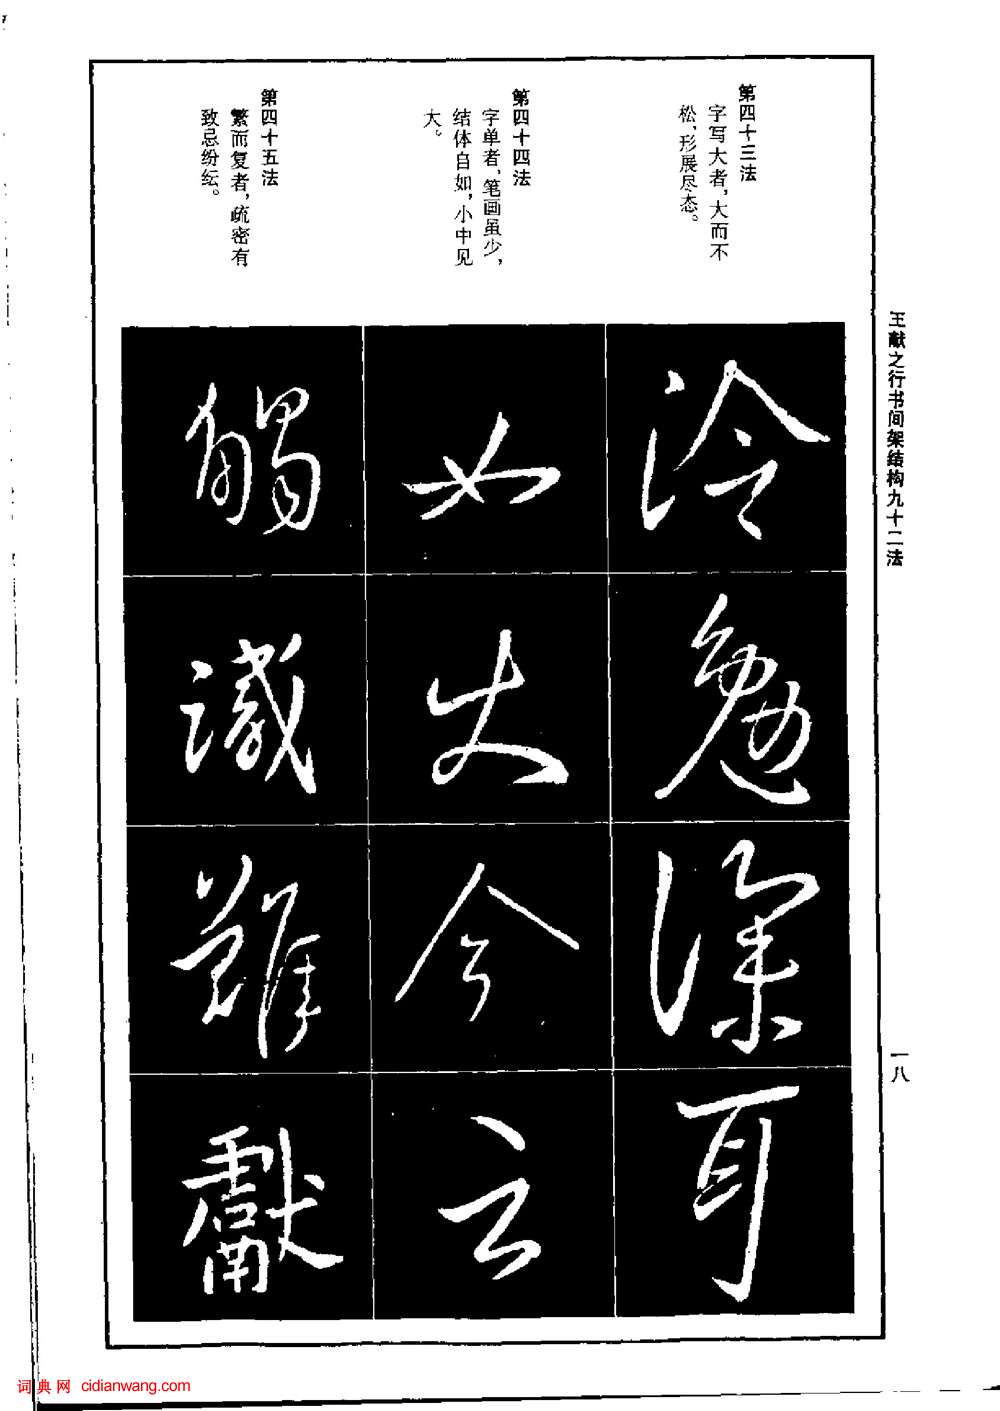 王献之行书间架结构九十二法
一八
第四十三法
字写大者，大而不
松，形展尽态。
第四十四法
字单者，笔画虽少，
结体自如，小中见
大。
第四十五法
繁而复者，疏密有
致忌纷纭。
冷
勉
深
耳
如
火
今
云
觸
識
難
獻
词典网 cidianwang.com